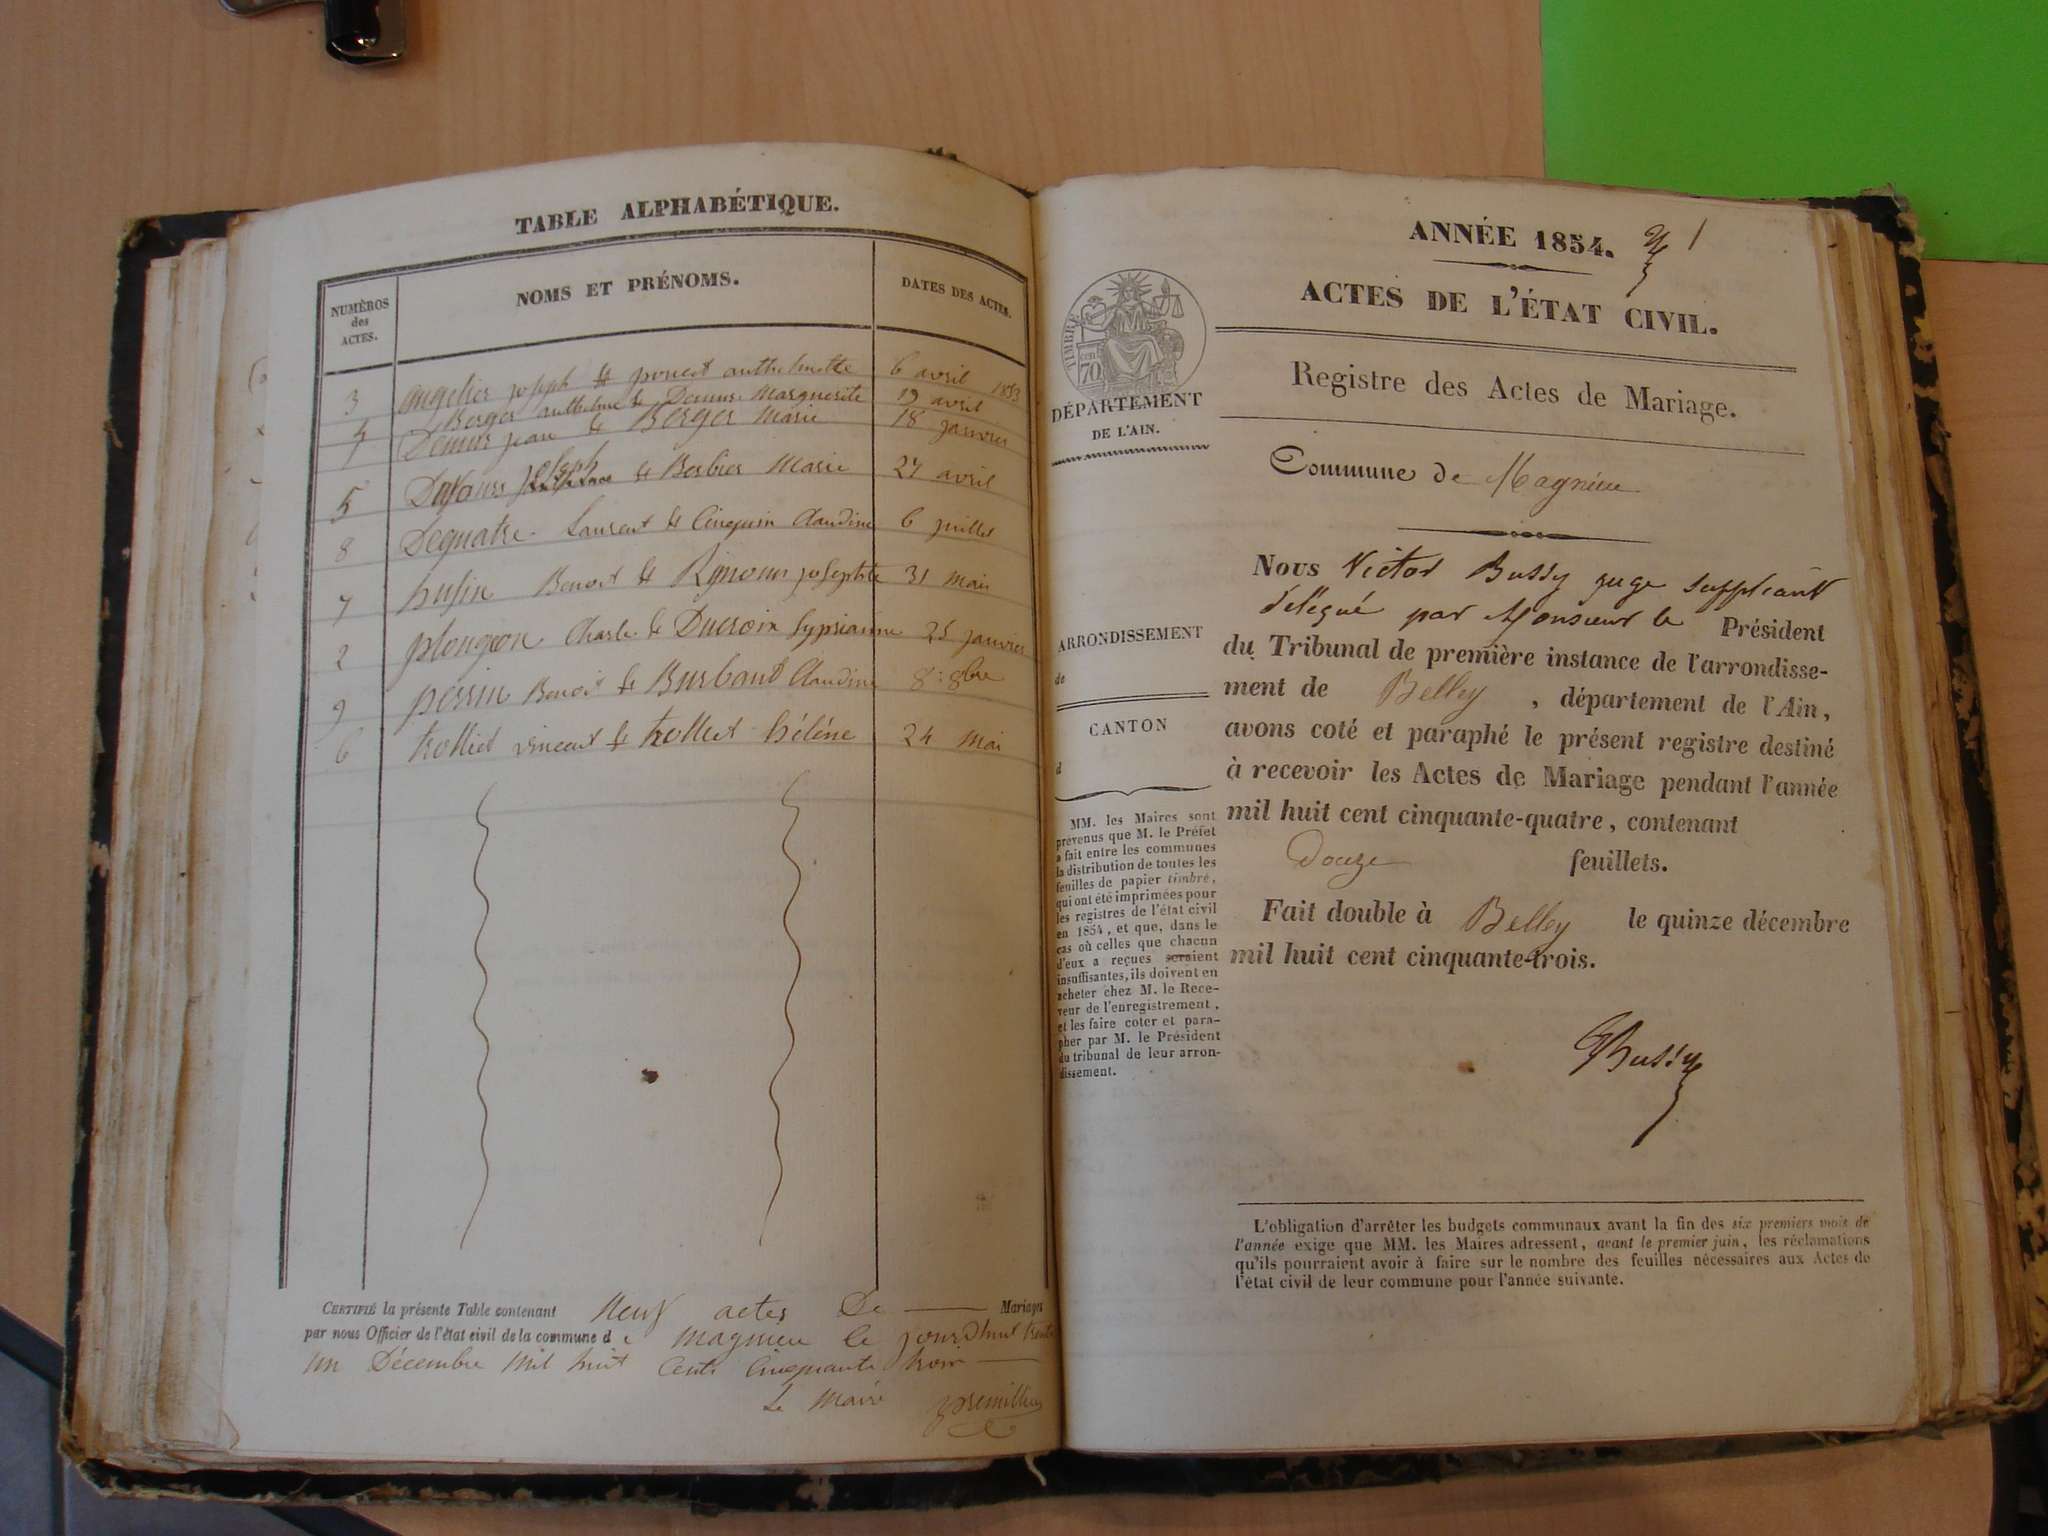 TABLE ALPHABÉTIQUE.
NUMÉROS des ACTES.
NOMS ET PRÉNOMS.
DATES DES ACTES.
3 angelier joseph & poncet anthelmette 6 avril 1853
4 Berger anthelme & Demur Marguerite 19 avril
1 Demur jean & Berger Marie 18 janvier
5 joseph & Berbier Marie 27 avril
8 Dequatre Laurent & Cinquin Claudine 6 juillet
7 husin Benoit & josephte 31 mai
2 plongeon Charle & Ducroin Sypriainne 25 janvier
9 perrin Benoit & Burbant Claudine 8 : 8bre
6 trolliet vincent & trolliet hélène 24 mai
CERTIFIÉ la présente Table contenant Neuf actes De Mariages
par nous Officier de l'état civil de la commune de magnieu le jourdhui trente
un Décembre mil huit cent cinquante trois
Le Maire
ANNÉE 1854. 1
ACTES DE L'ÉTAT CIVIL.
Registre des Actes de Mariage.
TIMBRE
cen
70
DÉPARTEMENT
DE L'AIN.
Commune de Magnieu
Nous Victor Bussy juge suppléant
délégué par Monsieur le Président
du Tribunal de première instance de l'arrondisse-
ment de Belley, département de l'Ain,
avons coté et paraphé le présent registre destiné
à recevoir les Actes de Mariage pendant l'année
mil huit cent cinquante-quatre, contenant
Douze feuillets.
Fait double à Belley le quinze décembre
mil huit cent cinquante-trois.
Bussy
ARRONDISSEMENT
de
CANTON
d
MM. les Maires sont
prévenus que M. le Préfet
a fait entre les communes
la distribution de toutes les
feuilles de papier timbré,
qui ont été imprimées pour
les registres de l'état civil
en 1854, et que, dans le
cas où celles que chacun
d'eux a reçues seraient
insuffisantes, ils doivent en
acheter chez M. le Rece-
veur de l'enregistrement,
et les faire coter et para-
pher par M. le Président
du tribunal de leur arron-
dissement.
L'obligation d'arrêter les budgets communaux avant la fin des six premiers mois de
l'année exige que MM. les Maires adressent, avant le premier juin, les réclamations
qu'ils pourraient avoir à faire sur le nombre des feuilles nécessaires aux Actes de
l'état civil de leur commune pour l'année suivante.